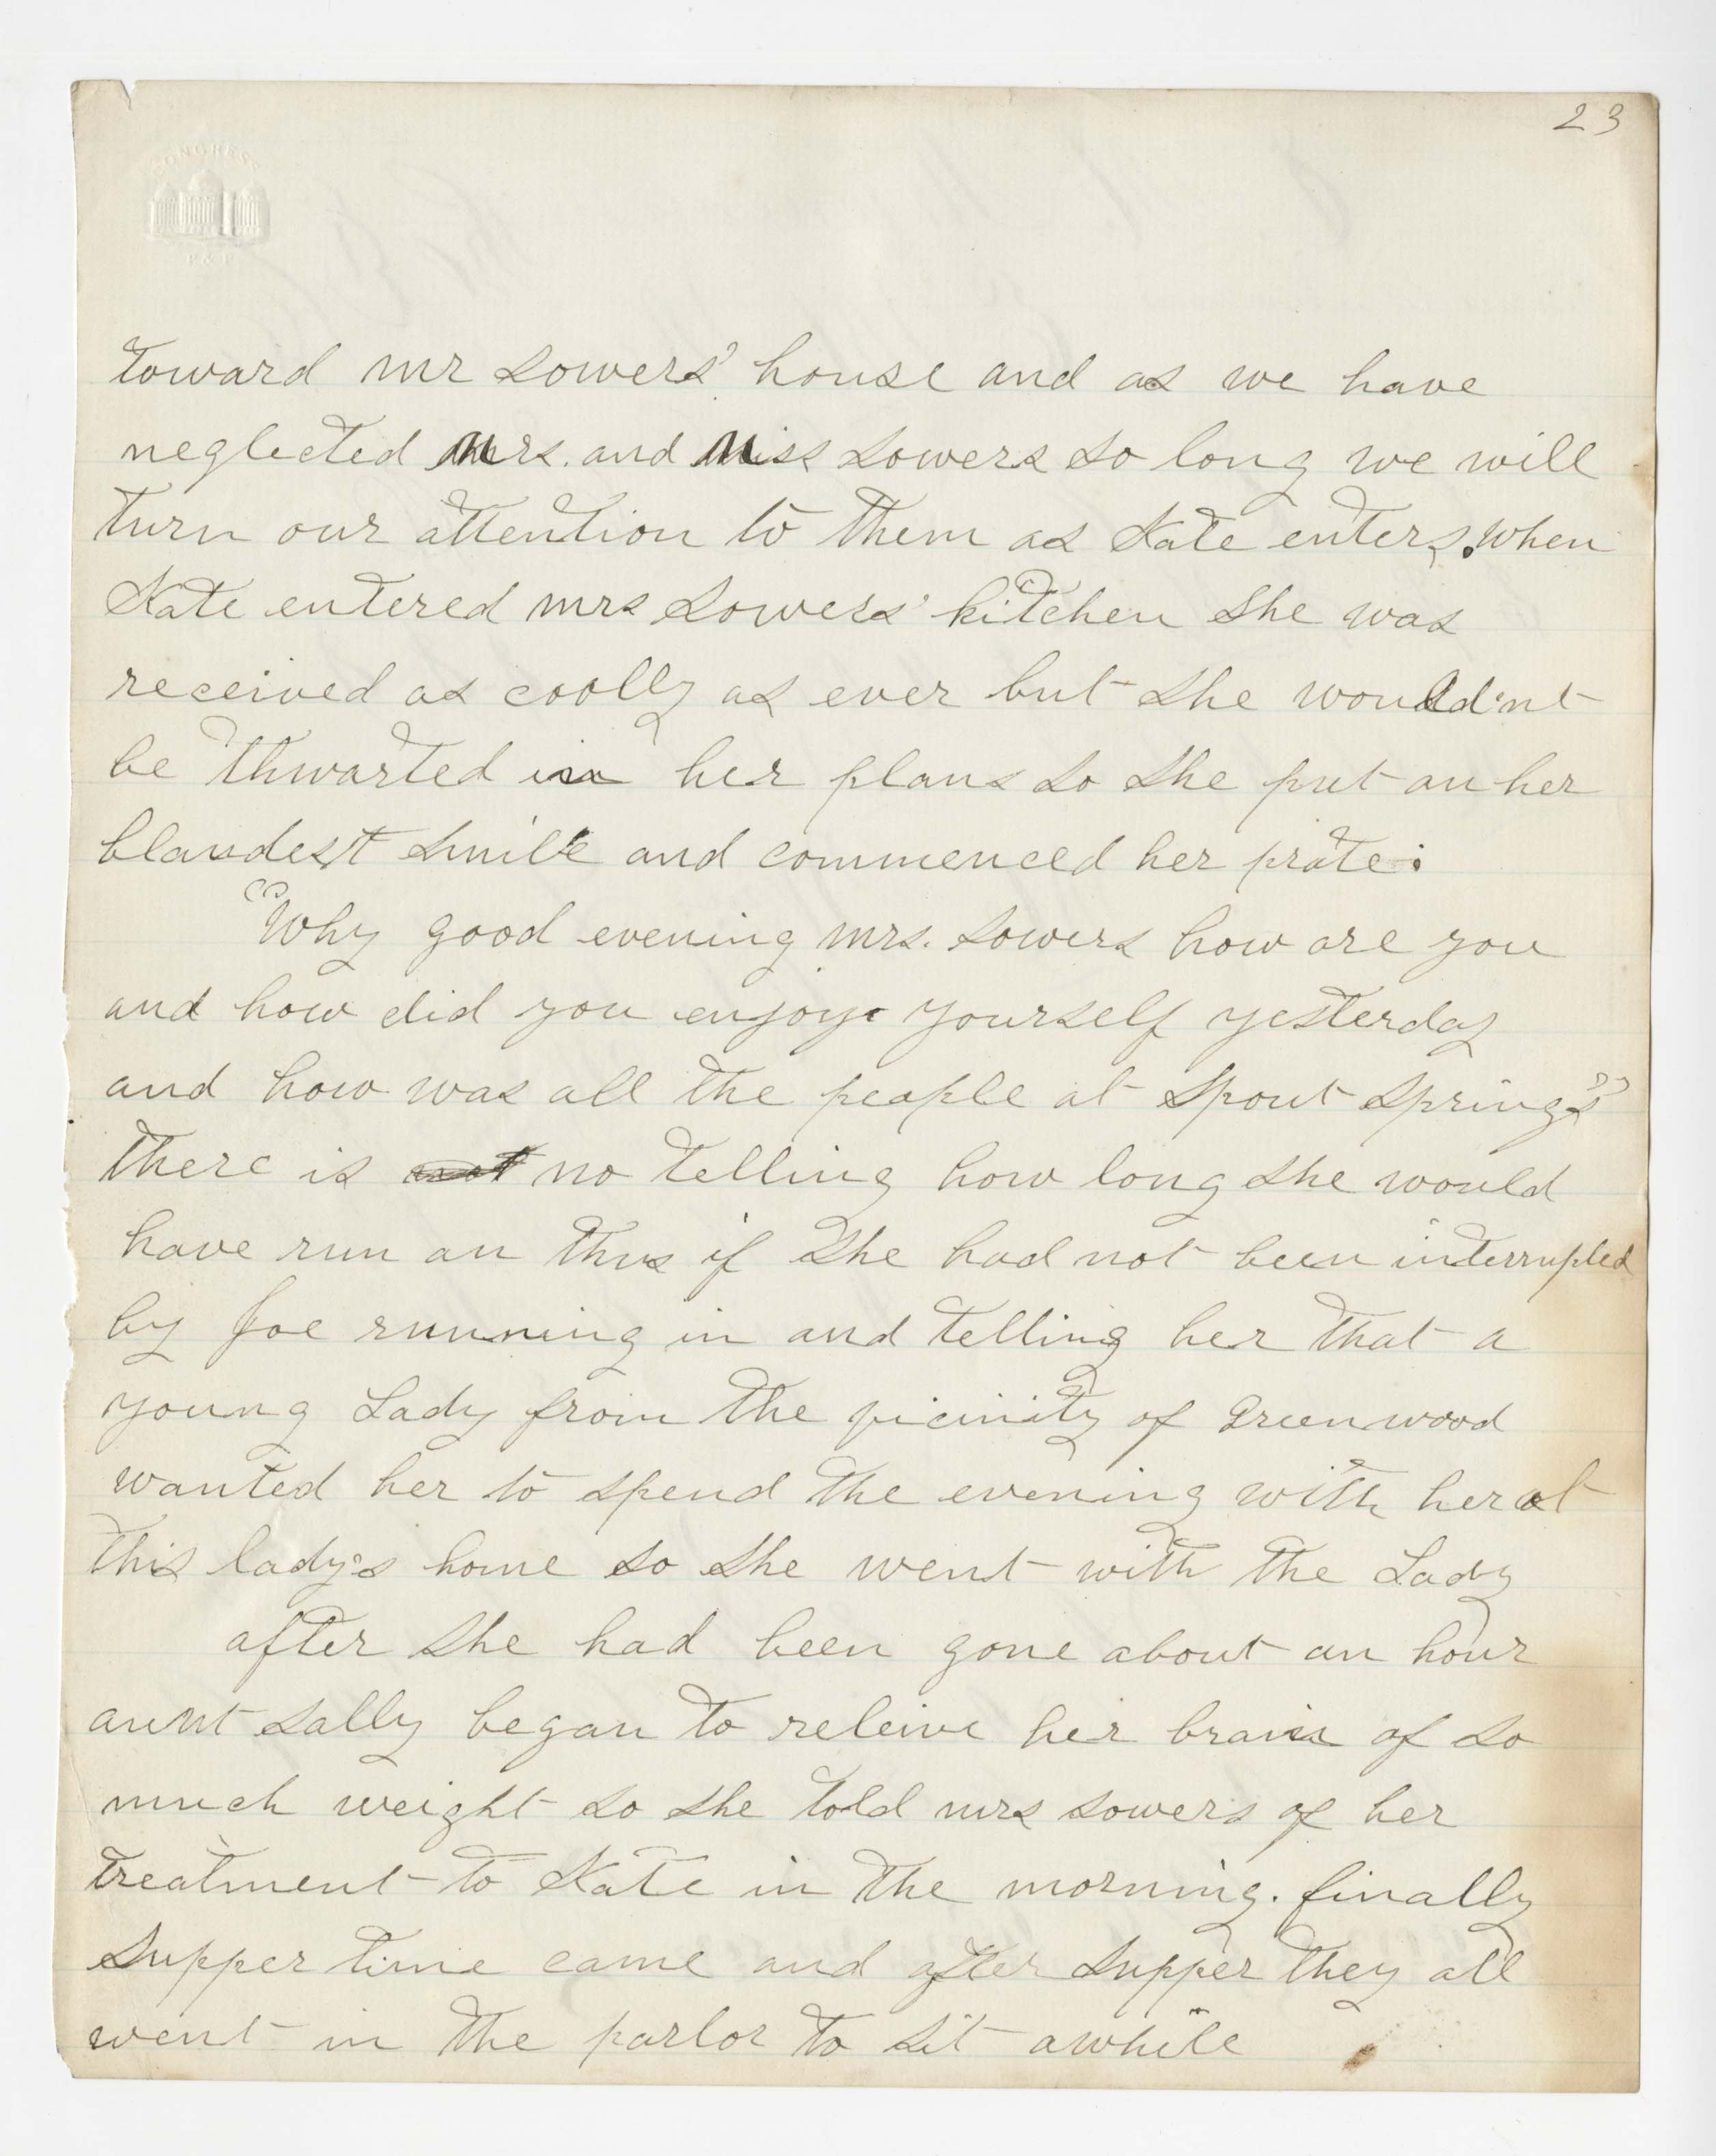 23
CONGRESS
P & P
toward mr Sowers' house and as we have
neglected Mrs. and Miss Sowers so long we will
turn our attention to them as Kate enters. When
Kate entered mrs Sowers' kitchen she was
received as coolly as ever but she would'nt
be thwarted in her plans so she put an her
blandest smile and commenced her prate:
"Why good evening mrs. Sowers how are you
and how did you enjoy yourself yesterday
and how was all the people at Spout Springs"
there is not no telling how long she would
have run an thus if she had not been interrupted
by Joe running in and telling her that a
young Lady from the vicinity of Greenwood
wanted her to spend the evening with her at
this lady's home so she went with the Lady
after she had been gone about an hour
aunt Sally began to releive her brain of so
much weight so she told mrs Sowers of her
treatment to Kate in the morning. finally
supper time came and after supper they all
went in the parlor to sit awhile